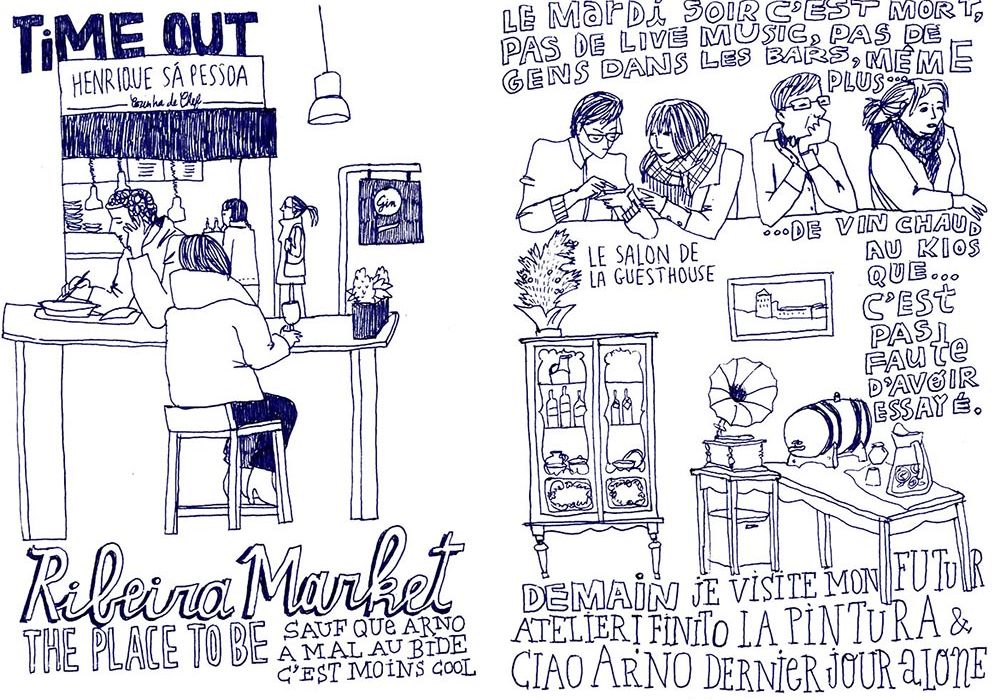 TiME OUT
HENRIQUE SÁ PESSOA
Cozinha de Chef
Gin
Ribeira Market
THE PLACE TO BE
SAUF QUE ARNO
A MAL AU BIDE
C'EST MOINS COOL
LE MARDi SOIR C'EST MORT,
PAS DE LIVE MUSIC, PAS DE
GENS DANS LES BARS, MÊME
PLUS...
...DE VIN CHAUD
AU KIOS
QUE...
C'EST
PAS!
FAUte
D'AVOIR
ESSAYÉ.
LE SALON DE
LA GUESTHOUSE
DEMAIN JE VISITE MON FUTUR
ATELIER! FINITO LA PiNTURA &
CIAO ARNO DERNIER JOUR ALONE